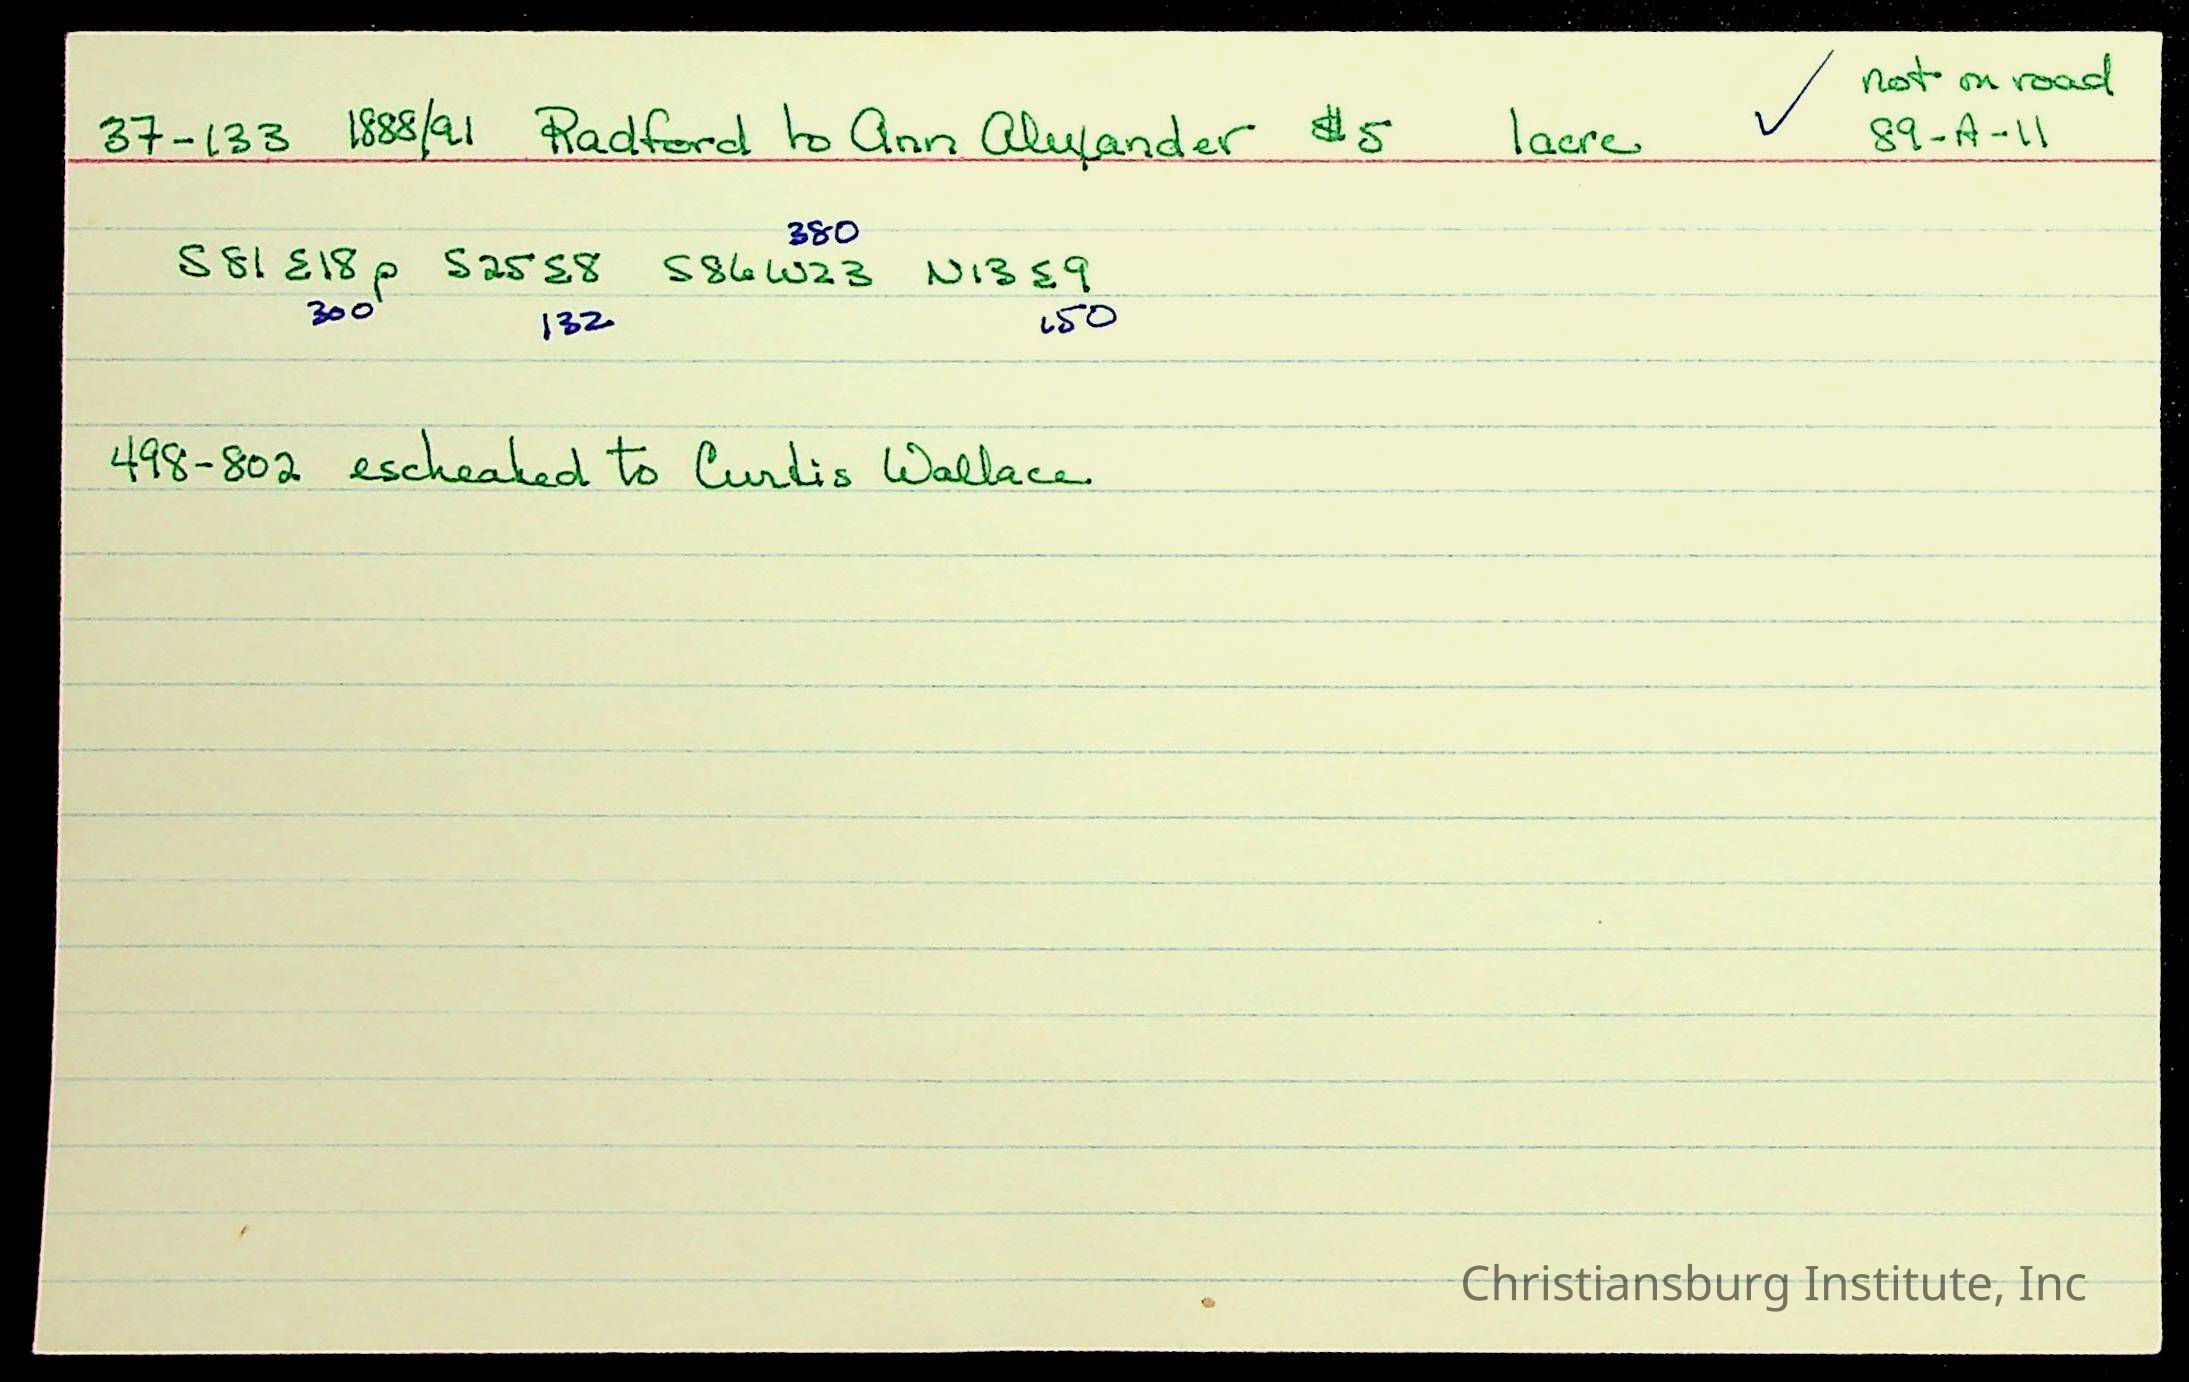 not on road
37-133 1888/91 Radford to Ann Alexander $5 1acre ✓ 89-A-11
380
S81 E18p S25 E8 S86 W23 N13 E9
300 132 150
498-802 escheated to Curtis Wallace
Christiansburg Institute, Inc